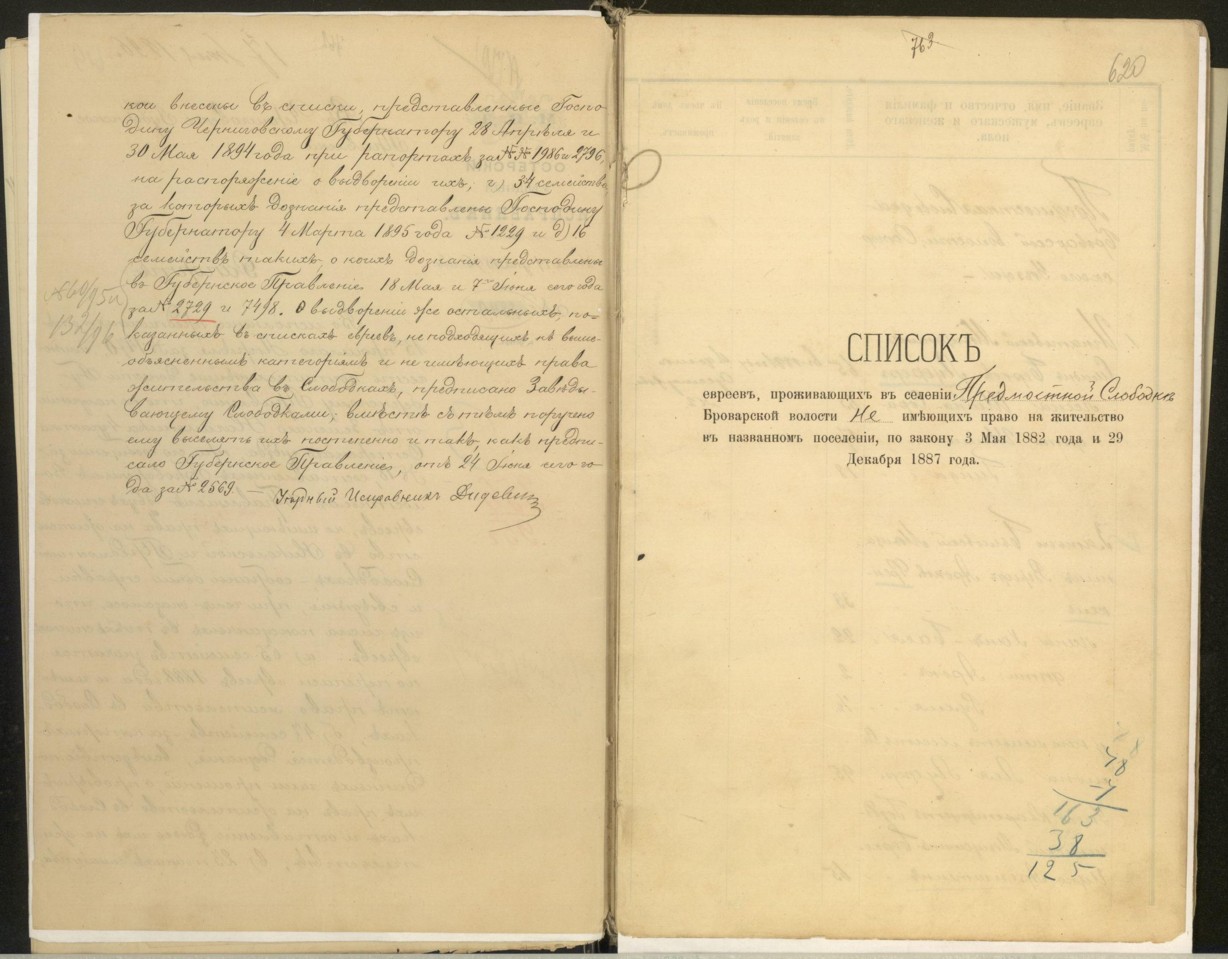 кои внесены въ списки, представленные Госпо-
дину Черниговскому Губернатору 28 Апрѣля и
30 Мая 1894 года при рапортахъ за №№ 1986 и 2796,
на распоряженіе о выдвореніи ихъ, г) 34 семейства
за которыхъ дознанія представлены Господину
Губернатору 4 Марта 1895 года № 1229 и д) 16
семействъ такихъ, о коихъ дознанія представлены
въ Губернское Правленіе 18 Мая и 7го Іюня сего года
за № 2729 и 7498. О выдвореніи же остальныхъ, по-
казанныхъ въ спискахъ евреевъ, не подходящихъ къ выше-
объясненнымъ категоріямъ и не имѣющихъ права
жительства въ Слободкахъ, предписано Завѣды-
вающему Слободками; вмѣстѣ съ тѣмъ поручено
ему выселять ихъ постепенно и такъ, какъ предпи-
сало Губернское Правленіе, отъ 24 Іюня сего го-
да за № 2569. — Исправникъ
№ 60/95
132/96
763
620
СПИСОКЪ
евреевъ, проживающихъ въ селеніи Предмостной Слободкѣ
Броварской волости не имѣющихъ право на жительство
въ названномъ поселеніи, по закону 3 Мая 1882 года и 29
Декабря 1887 года.
78
163
38
125